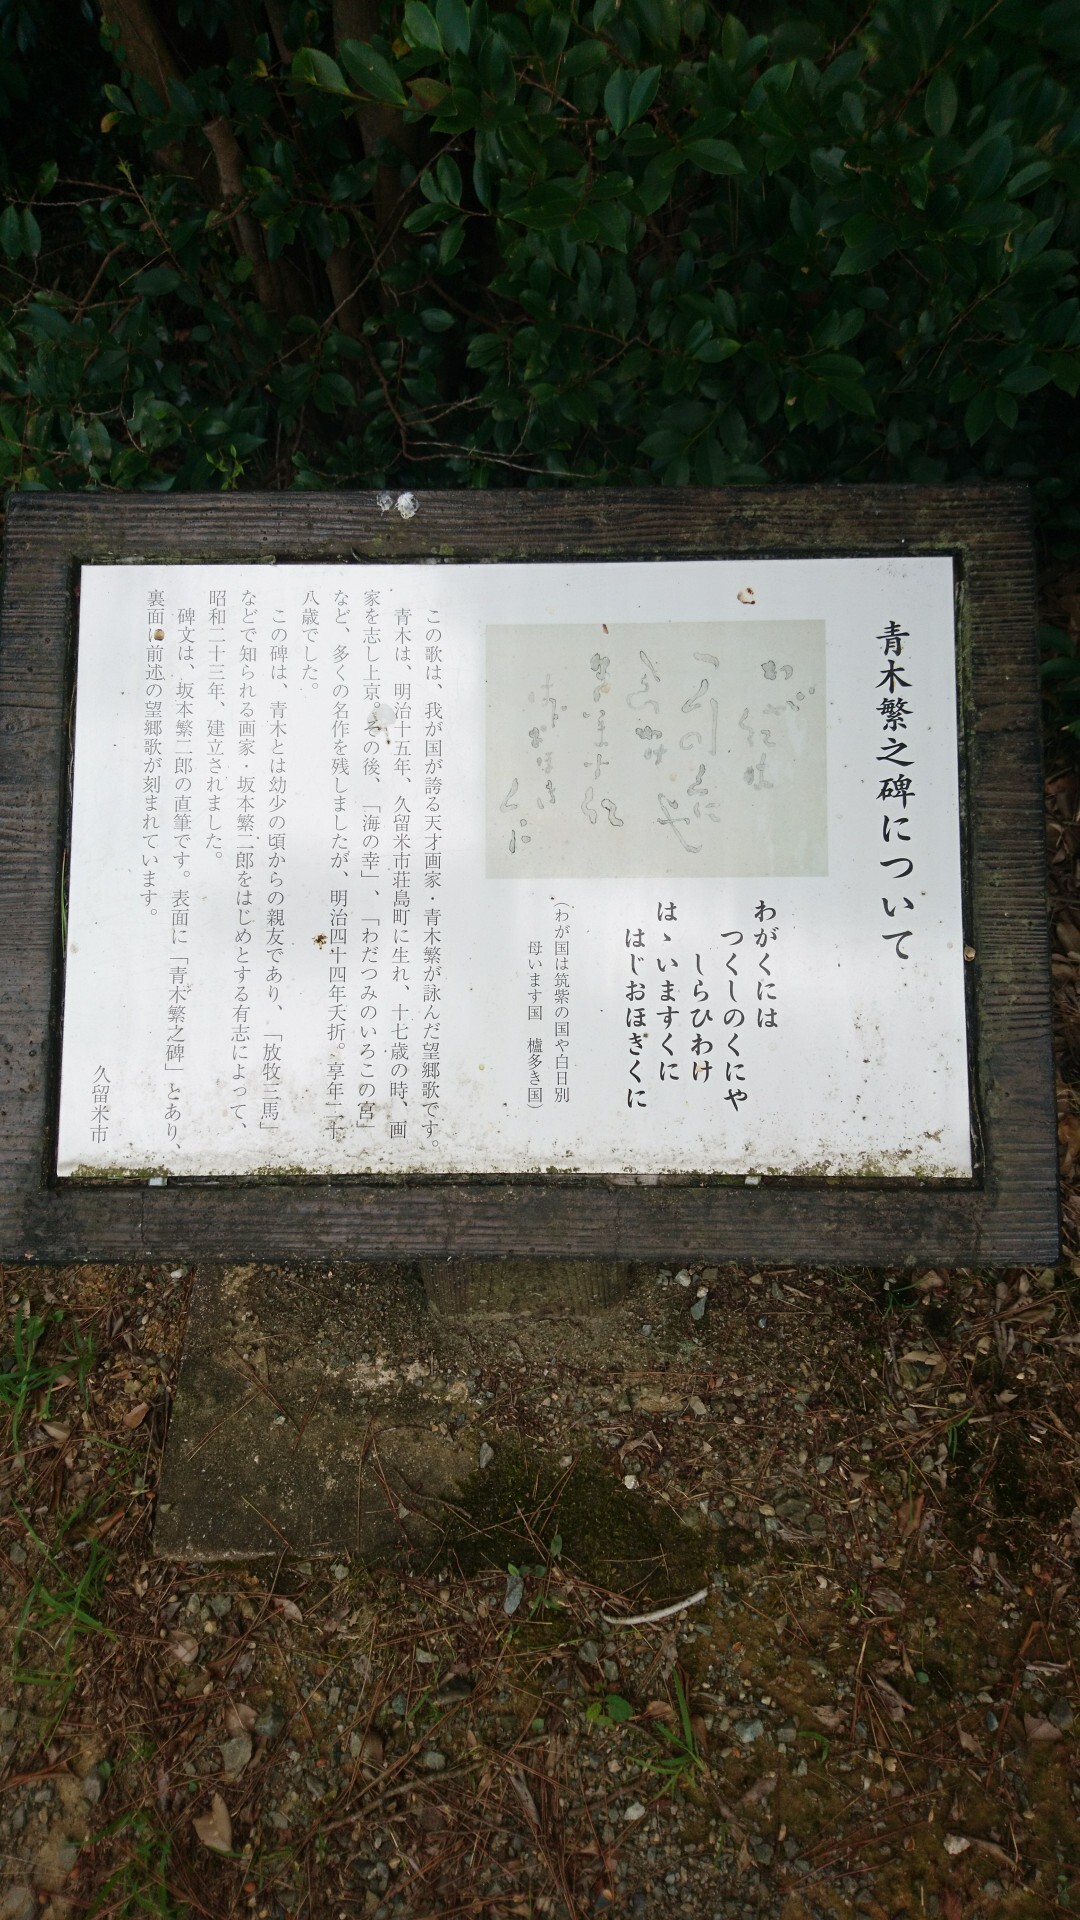 青木繁之碑について
わがくには
つくしのくにや
しらひわけ
はゝいますくに
はじおほきくに
(わが国は筑紫の国や白日別
母います国 櫨多き国)
この歌は、我が国が誇る天才画家・青木繁が詠んだ望郷歌です。
青木は、明治十五年、久留米市荘島町に生れ、十七歳の時、画
家を志し上京。その後、「海の幸」、「わだつみのいろこの宮」
など、多くの名作を残しましたが、明治四十四年夭折。享年二十
八歳でした。
この碑は、青木とは幼少の頃からの親友であり、「放牧三馬」
などで知られる画家・坂本繁二郎をはじめとする有志によって、
昭和二十三年、建立されました。
碑文は、坂本繁二郎の直筆です。表面に「青木繁之碑」とあり、
裏面に前述の望郷歌が刻まれています。
久留米市